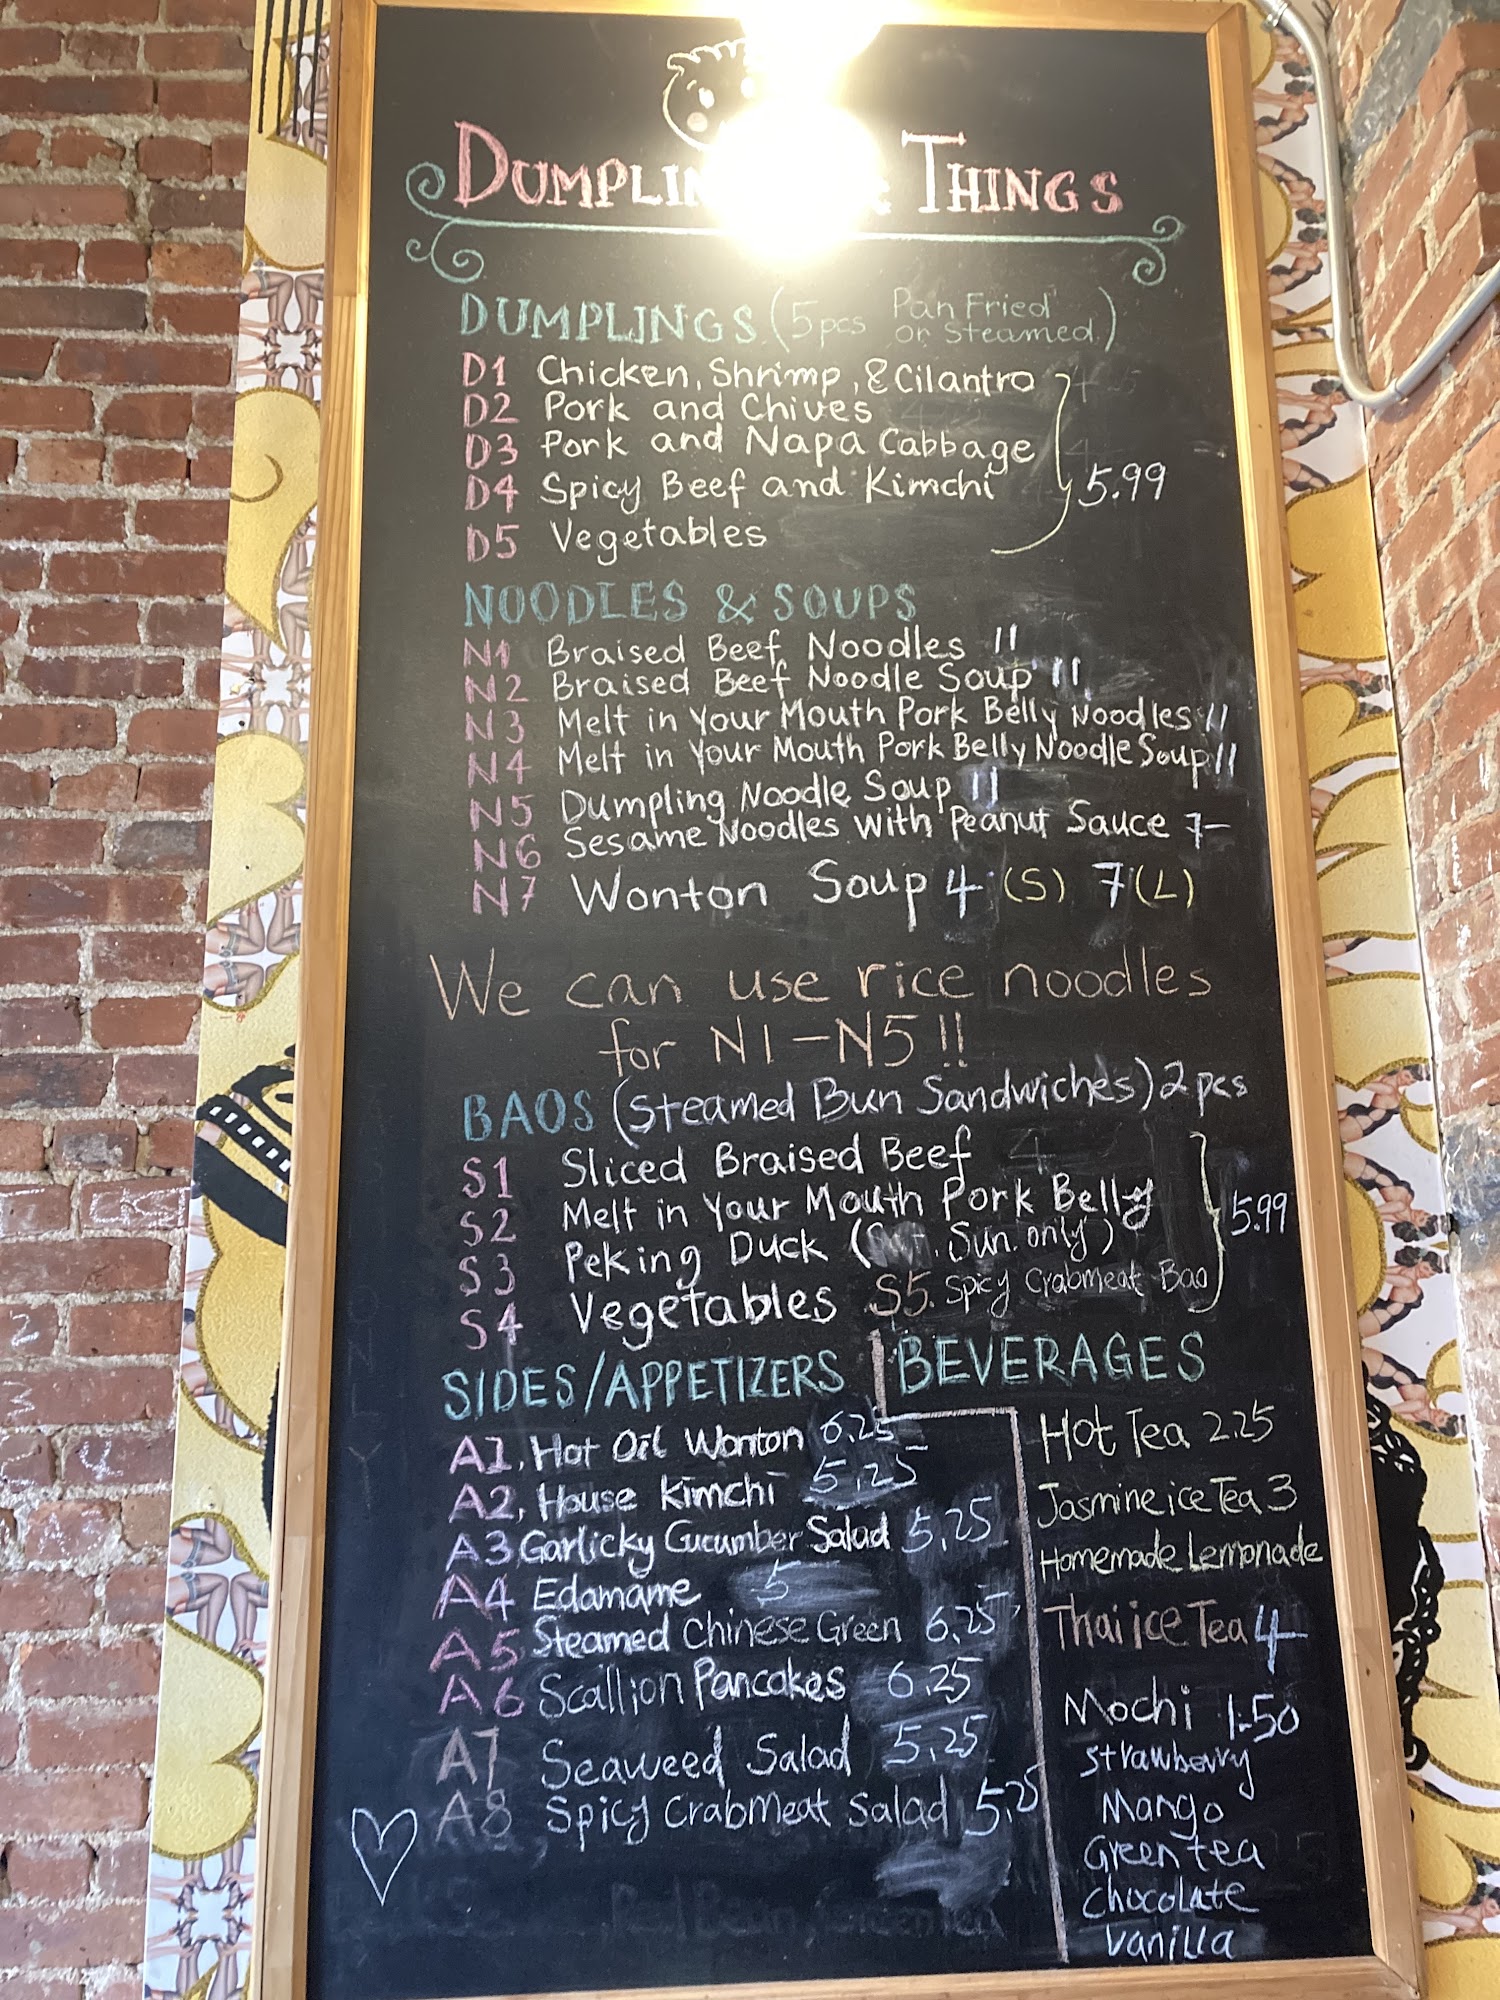 THINGS
DUMPLINGS (5pcs Pan Fried or Steamed)
D1 Chicken, Shrimp, & Cilantro
D2 Pork and Chives
D3 Pork and Napa Cabbage
D4 Spicy Beef and Kimchi 5.99
D5 Vegetables
NOODLES & SOUPS
N1 Braised Beef Noodles 11
N2 Braised Beef Noodle Soup 11
N3 Melt in Your Mouth Pork Belly Noodles 11
N4 Melt in Your Mouth Pork Belly Noodle Soup 11
N5 Dumpling Noodle Soup 11
N6 Sesame Noodles with Peanut Sauce 7-
N7 Wonton Soup 4 (S) 7 (L)
We can use rice noodles
for N1-N5!!
BAOS (Steamed Bun Sandwiches) 2pcs
S1 Sliced Braised Beef
S2 Melt in Your Mouth Pork Belly 5.99
S3 Peking Duck ( Sun. only)
S4 Vegetables S5. Spicy Crabmeat Bao
SIDES/APPETIZERS
A1, Hot Oil Wonton 6.25
A2, House Kimchi 5.25
A3 Garlicky Cucumber Salad 5.25
A4 Edamame 5
A5 Steamed Chinese Green 6.25
A6 Scallion Pancakes 6.25
A7 Seaweed Salad 5.25
A8 Spicy Crabmeat Salad 5.25
BEVERAGES
Hot Tea 2.25
Jasmine ice Tea 3
Homemade Lemonade
Thai ice Tea 4
Mochi 1.50
Strawberry
Mango
Green tea
Chocolate
Vanilla